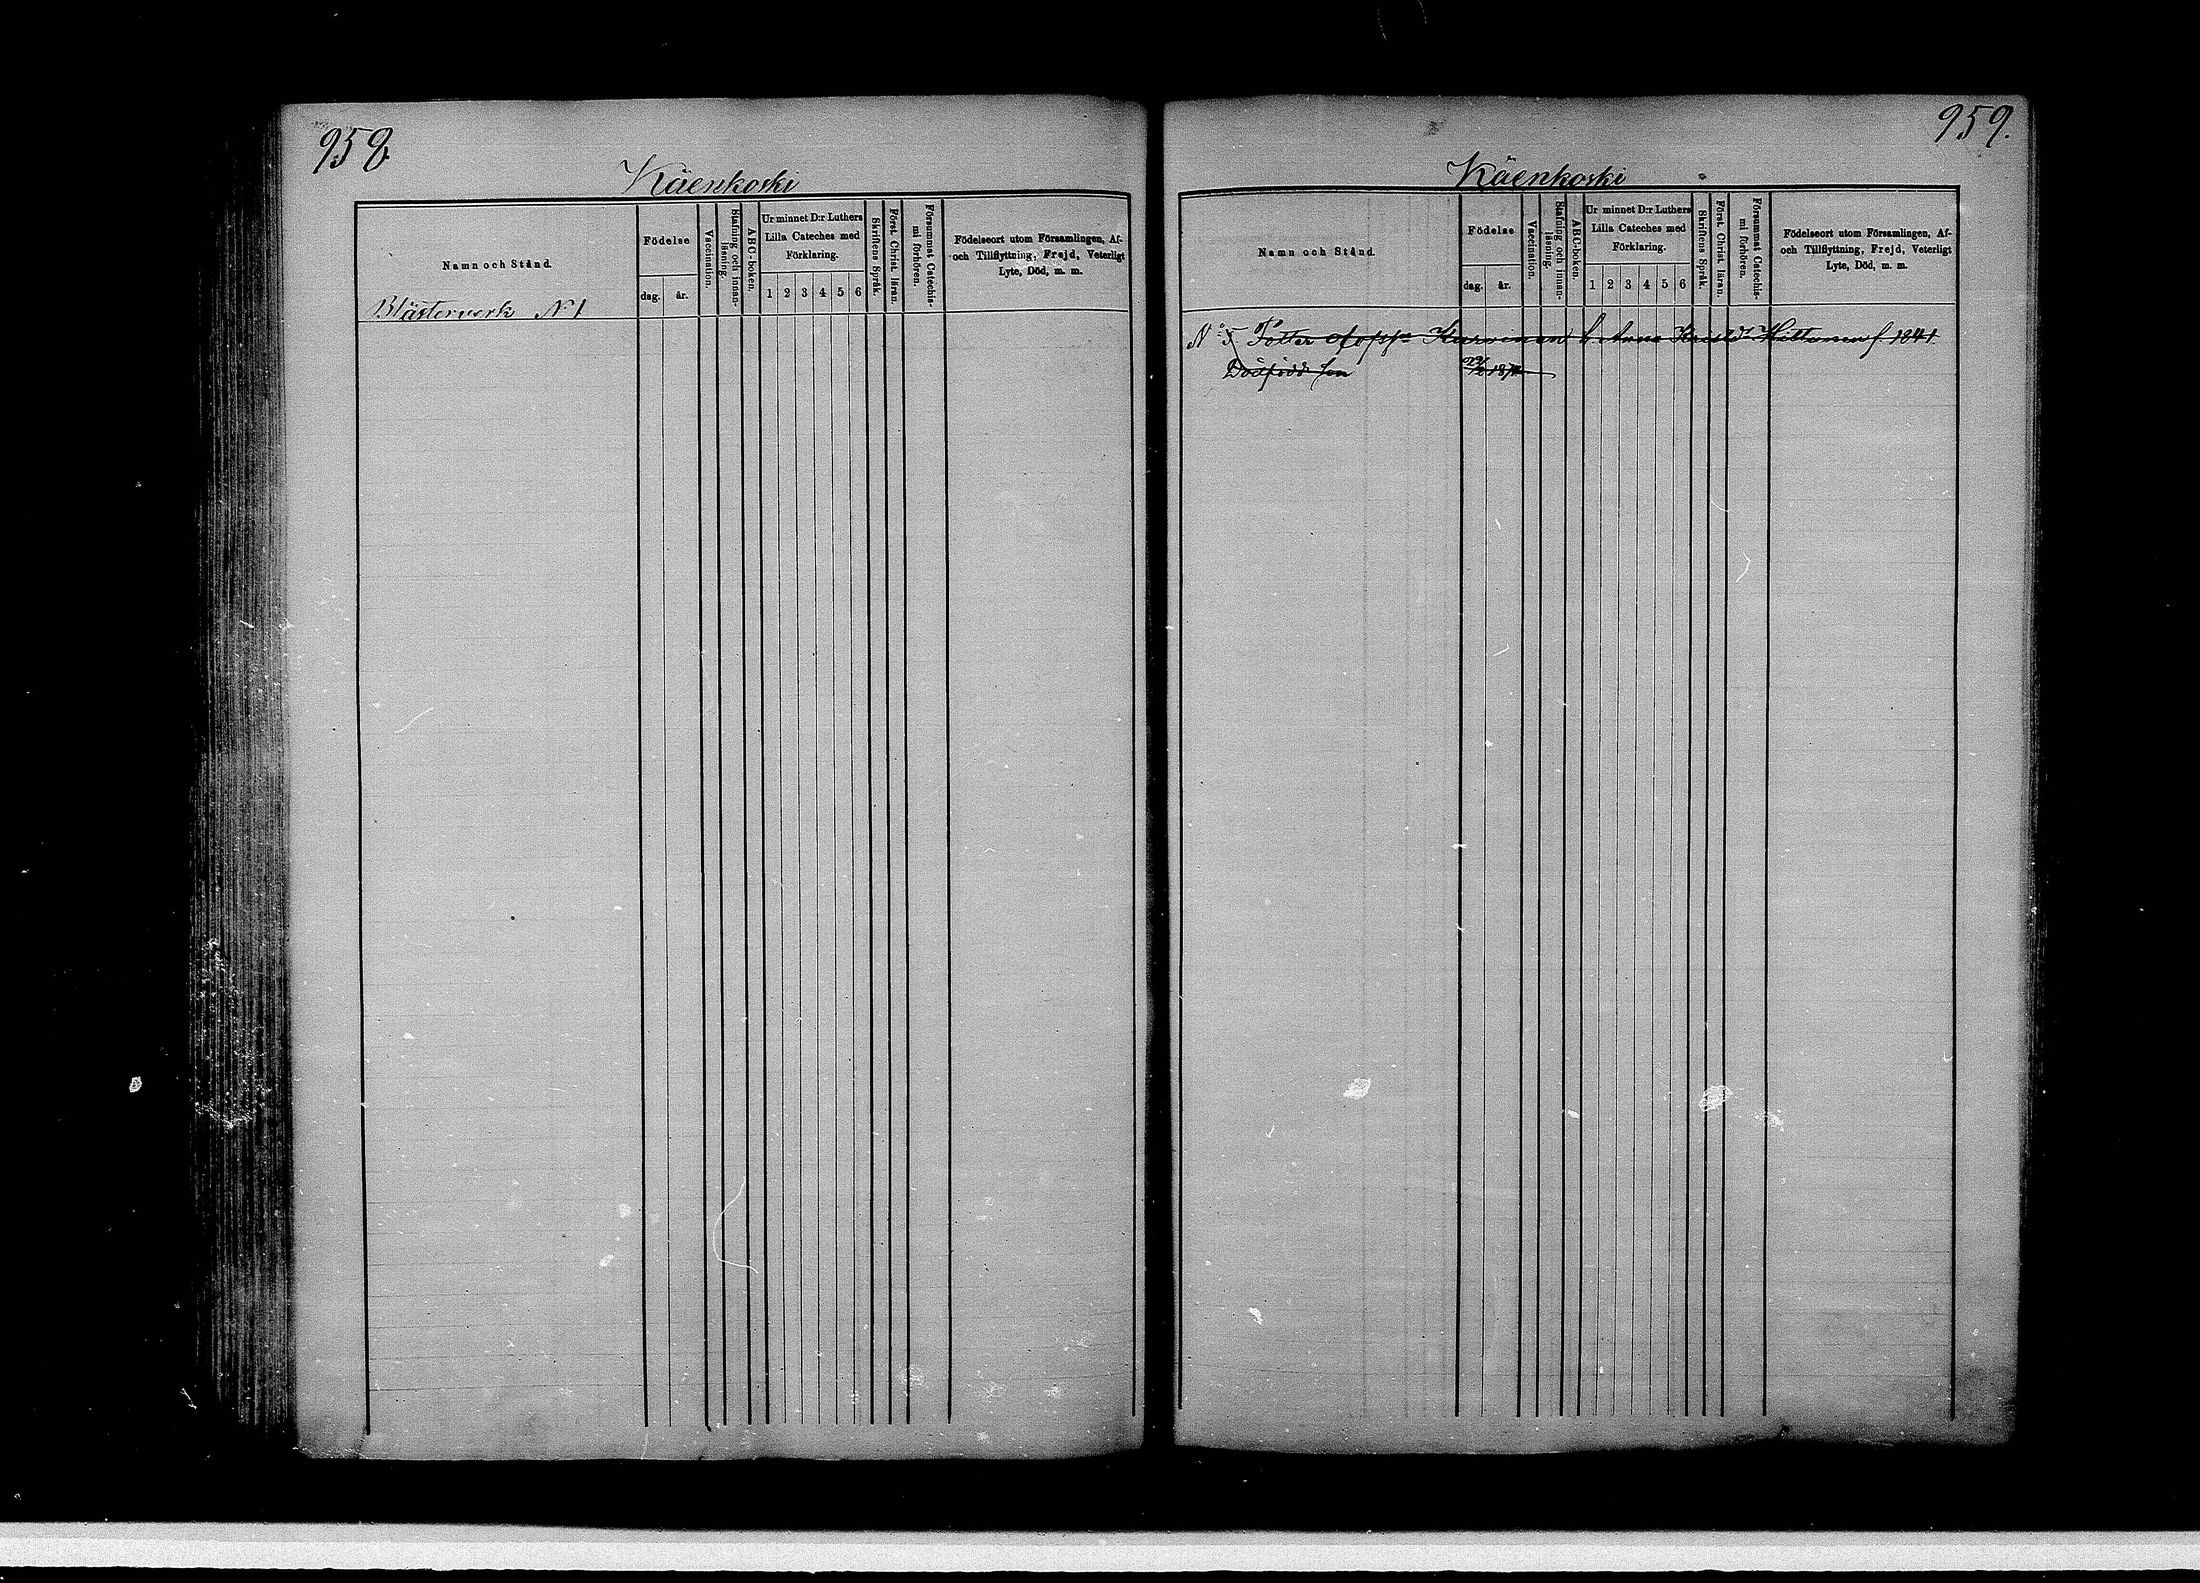 958
Käenkoski
Namn och Stånd.
Födelse
dag. år.
Vaccination.
Stafning och innanläsning.
ABC-boken.
Ur minnet D:r Luthers
Lilla Cateches med
Förklaring.
1 2 3 4 5 6
Skriftens Språk.
Först. Christ. läran.
Försummat Catechismi förhören.
Födelseort utom Församlingen, Af-
och Tillflyttning, Frejd, Veterligt
Lyte, Död, m. m.
Blästerverk N 1
959.
Käenkoski
Namn och Stånd.
Födelse
dag. år.
Vaccination.
Stafning och innanläsning.
ABC-boken.
Ur minnet D:r Luthers
Lilla Cateches med
Förklaring.
1 2 3 4 5 6
Skriftens Språk.
Först. Christ. läran.
Försummat Catechismi förhören.
Födelseort utom Församlingen, Af-
och Tillflyttning, Frejd, Veterligt
Lyte, Död, m. m.
Anna Hiltunen f 1841
Dödfödd son